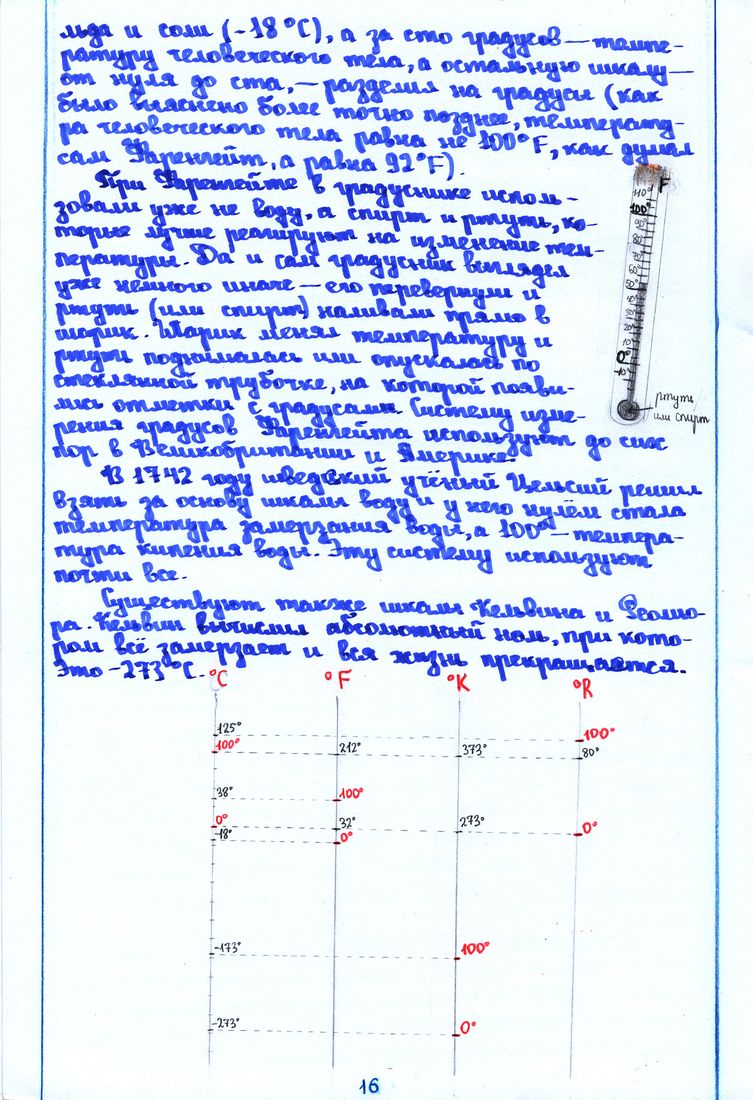 льда и соли (-18°С), а за сто градусов — темпе-
ратуру человеческого тела, а остальную шкалу —
от нуля до ста, — разделил на градусы (как
было выяснено более точно позднее, температу-
ра человеческого тела равна не 100°F, как думал
сам Фаренгейт, а равна 92°F).
При Фаренгейте в градуснике исполь-
зовали уже не воду, а спирт и ртуть, ко-
торые лучше реагируют на изменение тем-
пературы. Да и сам градусник выглядел
уже немного иначе — его перевернули и
ртуть (или спирт) наливали прямо в
шарик. Шарик менял температуру и
ртуть поднималась или опускалась по
стеклянной трубочке, на которой появи-
лись отметки с градусами. Систему изме-
рения градусов Фаренгейта используют до сих
пор в Великобритании и Америке.
F
110°
100°
90°
80°
70°
60°
50°
40°
30°
20°
10°
0°
-10°
ртуть
или спирт
В 1742 году шведский учёный Цельсий решил
взять за основу шкалы воду и у него нулём стала
температура замерзания воды, а 100° — темпера-
тура кипения воды. Эту систему используют
почти все.
Существуют также шкалы Кельвина и Реомю-
ра. Кельвин вычислил абсолютный ноль, при кото-
ром всё замерзает и вся жизнь прекращается.
Это -273°С.
°C °F °K °R
125° 100°
100° 212° 373° 80°
38° 100°
0° 32° 273° 0°
-18° 0°
-173° 100°
-273° 0°
16